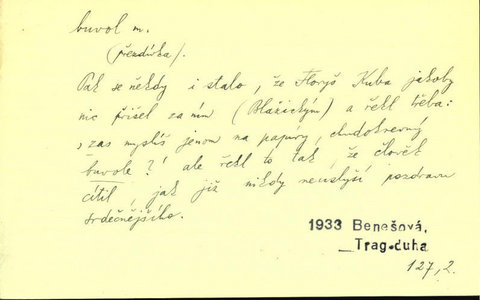 buvol m.
(přezdívka).
Pak se někdy i stalo, že Floryš Kuba jakoby
nic přišel za ním (Blažickým) a řekl třeba:
„zas myslíš jenom na papúry, chudokrevný
buvole?‘ ale řekl to tak, že člověk
cítil, jak již nikdy neuslyší pozdravu
srdečnějšího.
1933 Benešová,
Trag.duha
127, 2.